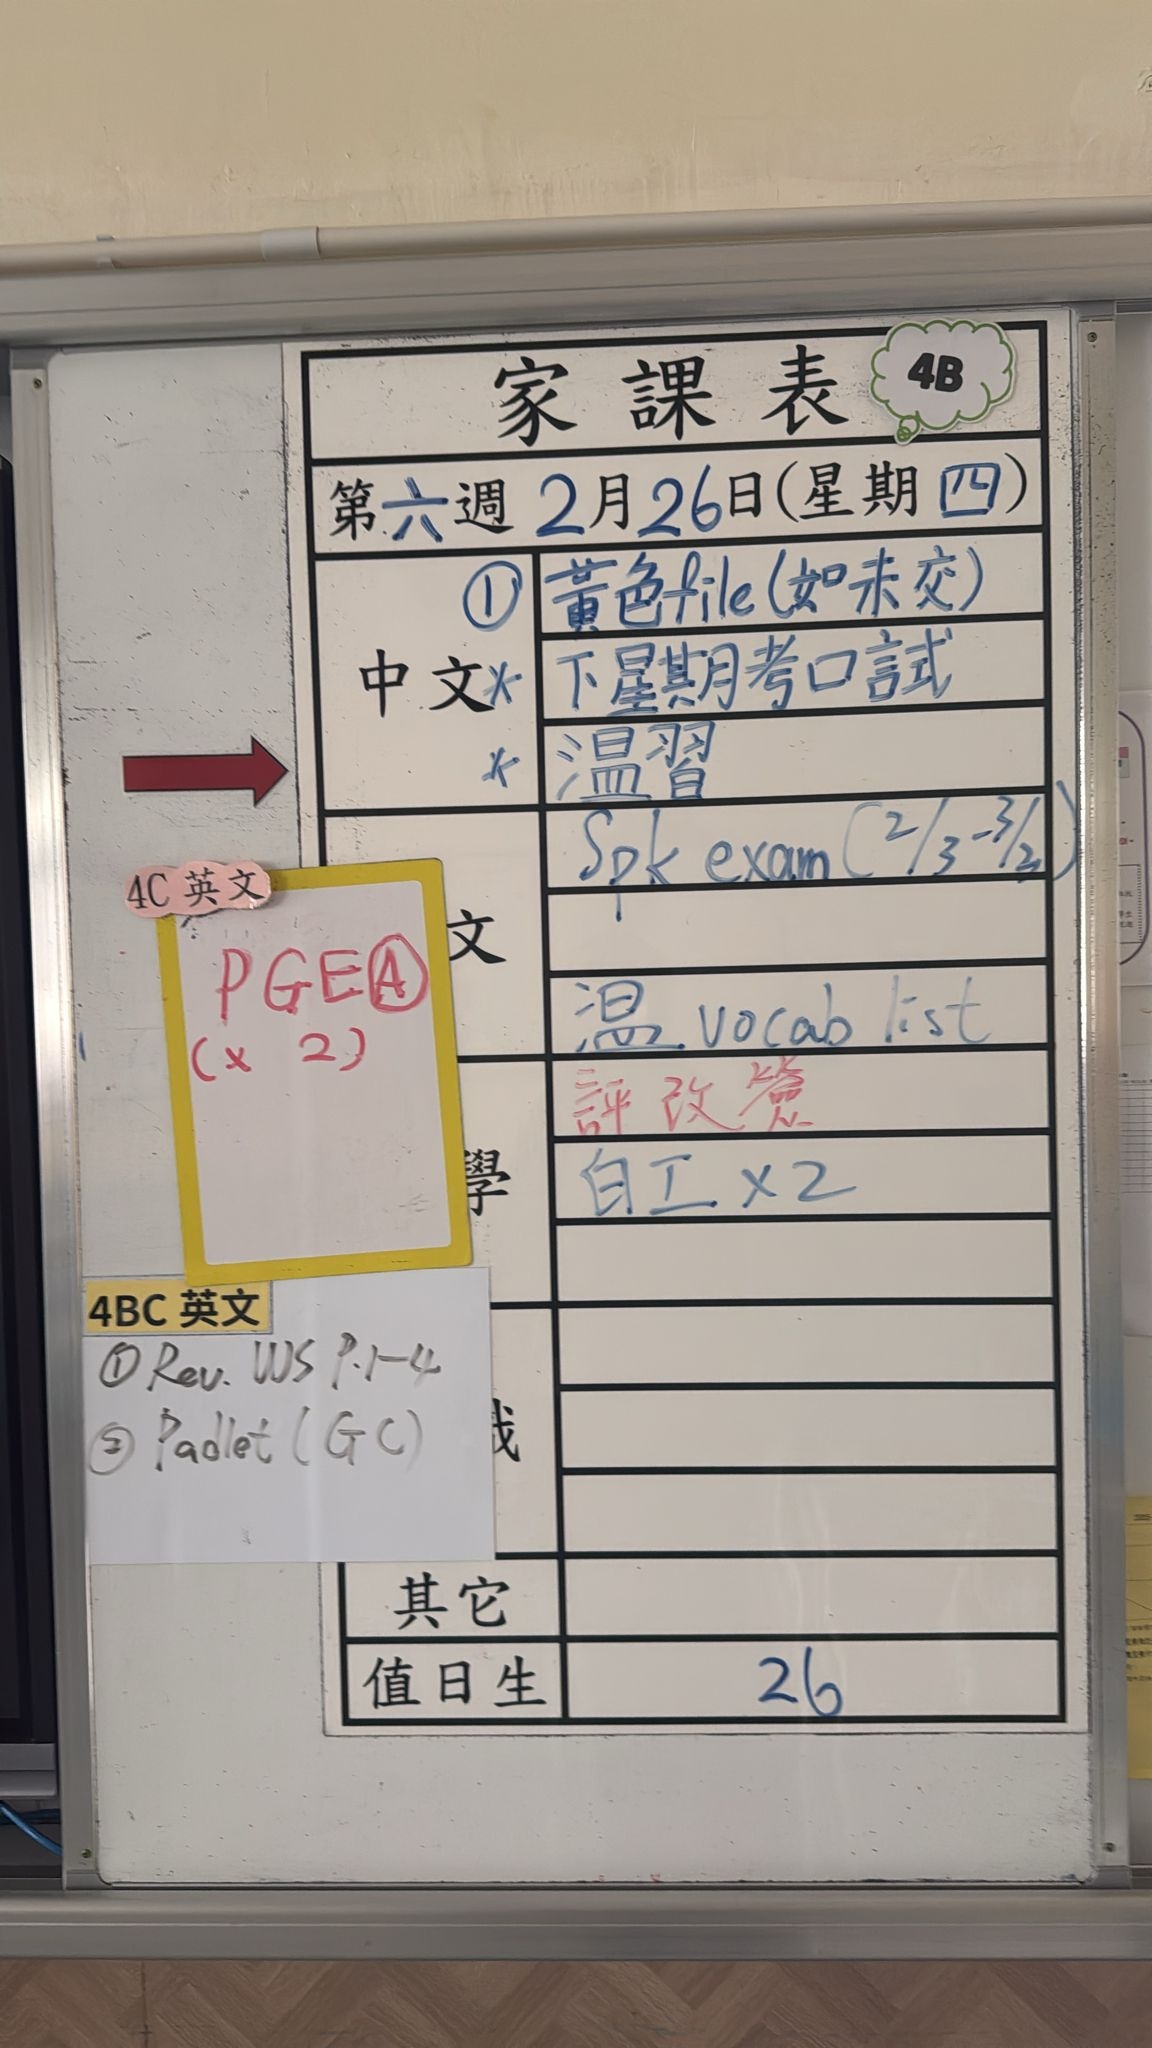 家課表
4B
第六週 2月26日(星期四)
中文
① 黃色file(如未交)
* 下星期月考口試
* 温習
文
Spk exam (2/3-3/2)
温 vocab list
學
評改簽
自工 x 2
其它
值日生 26
4C 英文
PGEⒶ
(x 2)
4BC 英文
① Rev. WS P.1-4
② Padlet (GC)